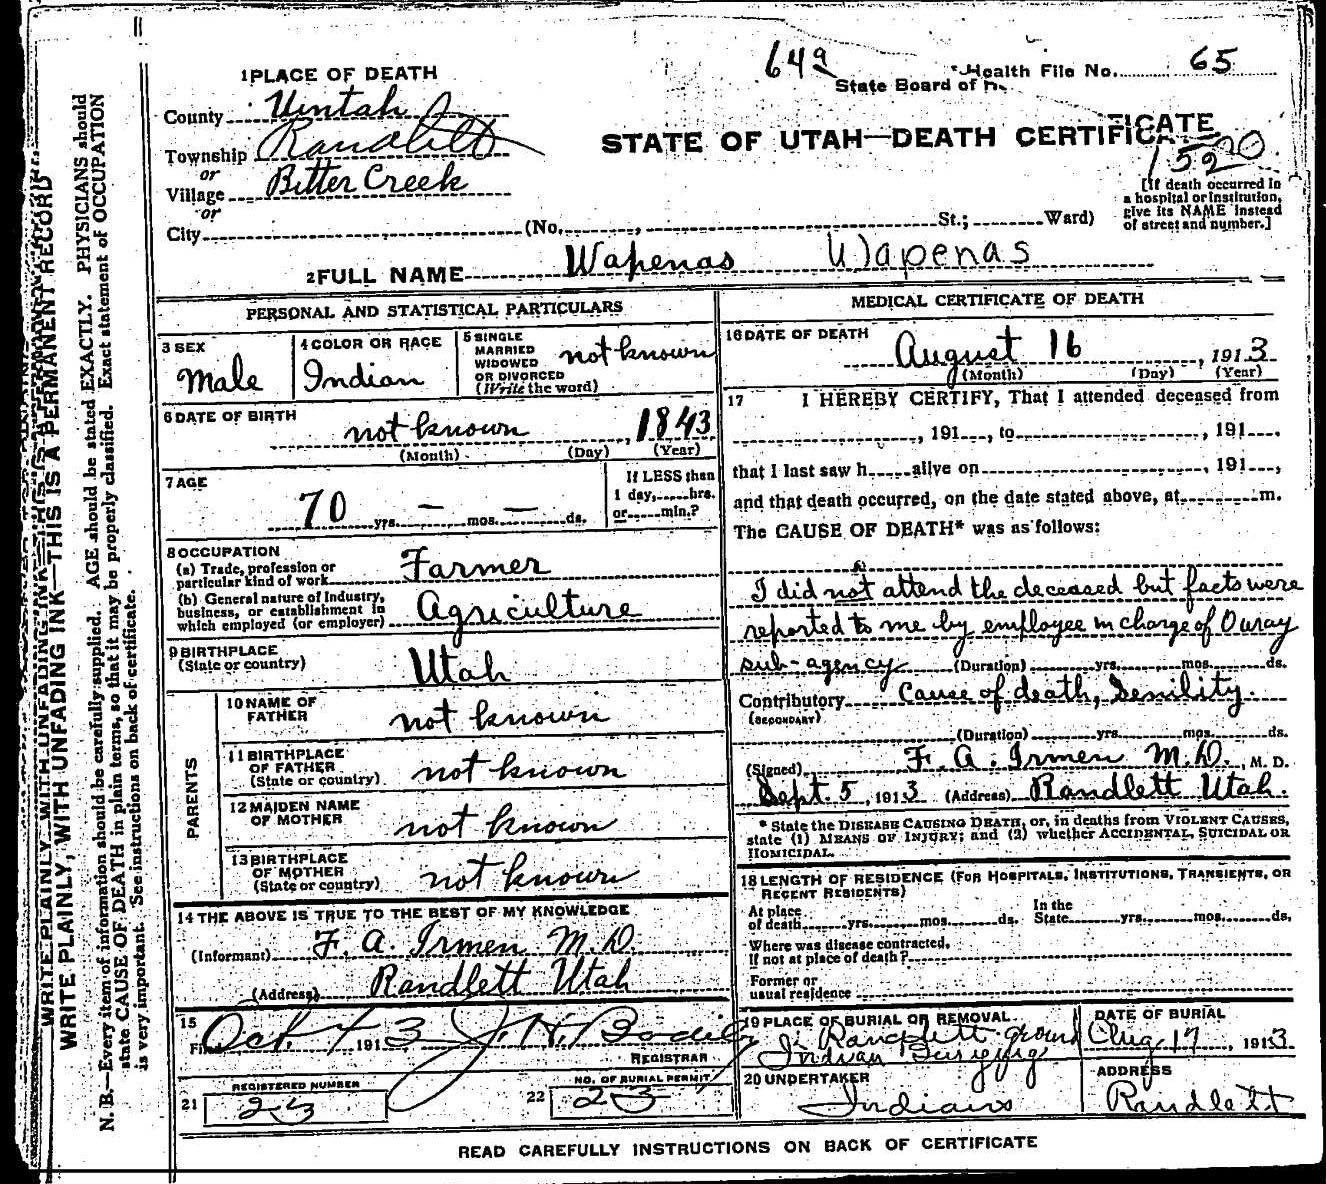 64a
Health File No. 65
State Board of H
1 PLACE OF DEATH
County Uintah
Township Randlett
or
Village Bitter Creek
or
City (No. , St.; Ward)
STATE OF UTAH—DEATH CERTIFICATE
1520
[If death occurred in
a hospital or institution,
give its NAME instead
of street and number.]
2 FULL NAME Wapenas Wapenas
PERSONAL AND STATISTICAL PARTICULARS
3 SEX
Male
4 COLOR OR RACE
Indian
5 SINGLE
MARRIED
WIDOWED
OR DIVORCED
(Write the word)
not known
6 DATE OF BIRTH
not known , 1843
(Month) (Day) (Year)
7 AGE
70 yrs. — mos. — ds.
If LESS than
1 day, hrs.
or min.?
8 OCCUPATION
(a) Trade, profession or
particular kind of work Farmer
(b) General nature of Industry,
business, or establishment in
which employed (or employer) Agriculture
9 BIRTHPLACE
(State or country) Utah
PARENTS
10 NAME OF
FATHER not known
11 BIRTHPLACE
OF FATHER
(State or country) not known
12 MAIDEN NAME
OF MOTHER not known
13 BIRTHPLACE
OF MOTHER
(State or country) not known
14 THE ABOVE IS TRUE TO THE BEST OF MY KNOWLEDGE
(Informant) F. A. Irmen M.D.
(Address) Randlett Utah
15
Oct. 4 1913 J. H. Bodily
REGISTRAR
REGISTERED NUMBER
21 23
NO. OF BURIAL PERMIT
22 23
MEDICAL CERTIFICATE OF DEATH
16 DATE OF DEATH
August 16 , 1913
(Month) (Day) (Year)
17 I HEREBY CERTIFY, That I attended deceased from
, 191 , to , 191 ,
that I last saw h alive on , 191 ,
and that death occurred, on the date stated above, at m.
The CAUSE OF DEATH* was as follows:
I did not attend the deceased but facts were
reported to me by employee in charge of Ouray
sub-agency (Duration) yrs. mos. ds.
Contributory Cause of death, Senility.
(SECONDARY)
(Duration) yrs. mos. ds.
(Signed) F. A. Irmen M.D. , M. D.
Sept 5 , 1913 (Address) Randlett Utah.
* State the DISEASE CAUSING DEATH, or, in deaths from VIOLENT CAUSES,
state (1) MEANS OF INJURY; and (2) whether ACCIDENTAL, SUICIDAL OR
HOMICIDAL.
18 LENGTH OF RESIDENCE (FOR HOSPITALS, INSTITUTIONS, TRANSIENTS, OR
RECENT RESIDENTS)
At place
of death yrs. mos. ds.
In the
State yrs. mos. ds.
Where was disease contracted,
If not at place of death?
Former or
usual residence
19 PLACE OF BURIAL OR REMOVAL
Randlett
Indian Burying ground
DATE OF BURIAL
Aug 17 , 1913
20 UNDERTAKER
Indians
ADDRESS
Randlett
READ CAREFULLY INSTRUCTIONS ON BACK OF CERTIFICATE
WRITE PLAINLY, WITH UNFADING INK—THIS IS A PERMANENT RECORD
N. B.—Every item of information should be carefully supplied. AGE should be stated EXACTLY. PHYSICIANS should
state CAUSE OF DEATH in plain terms, so that it may be properly classified. Exact statement of OCCUPATION
is very important. See instructions on back of certificate.